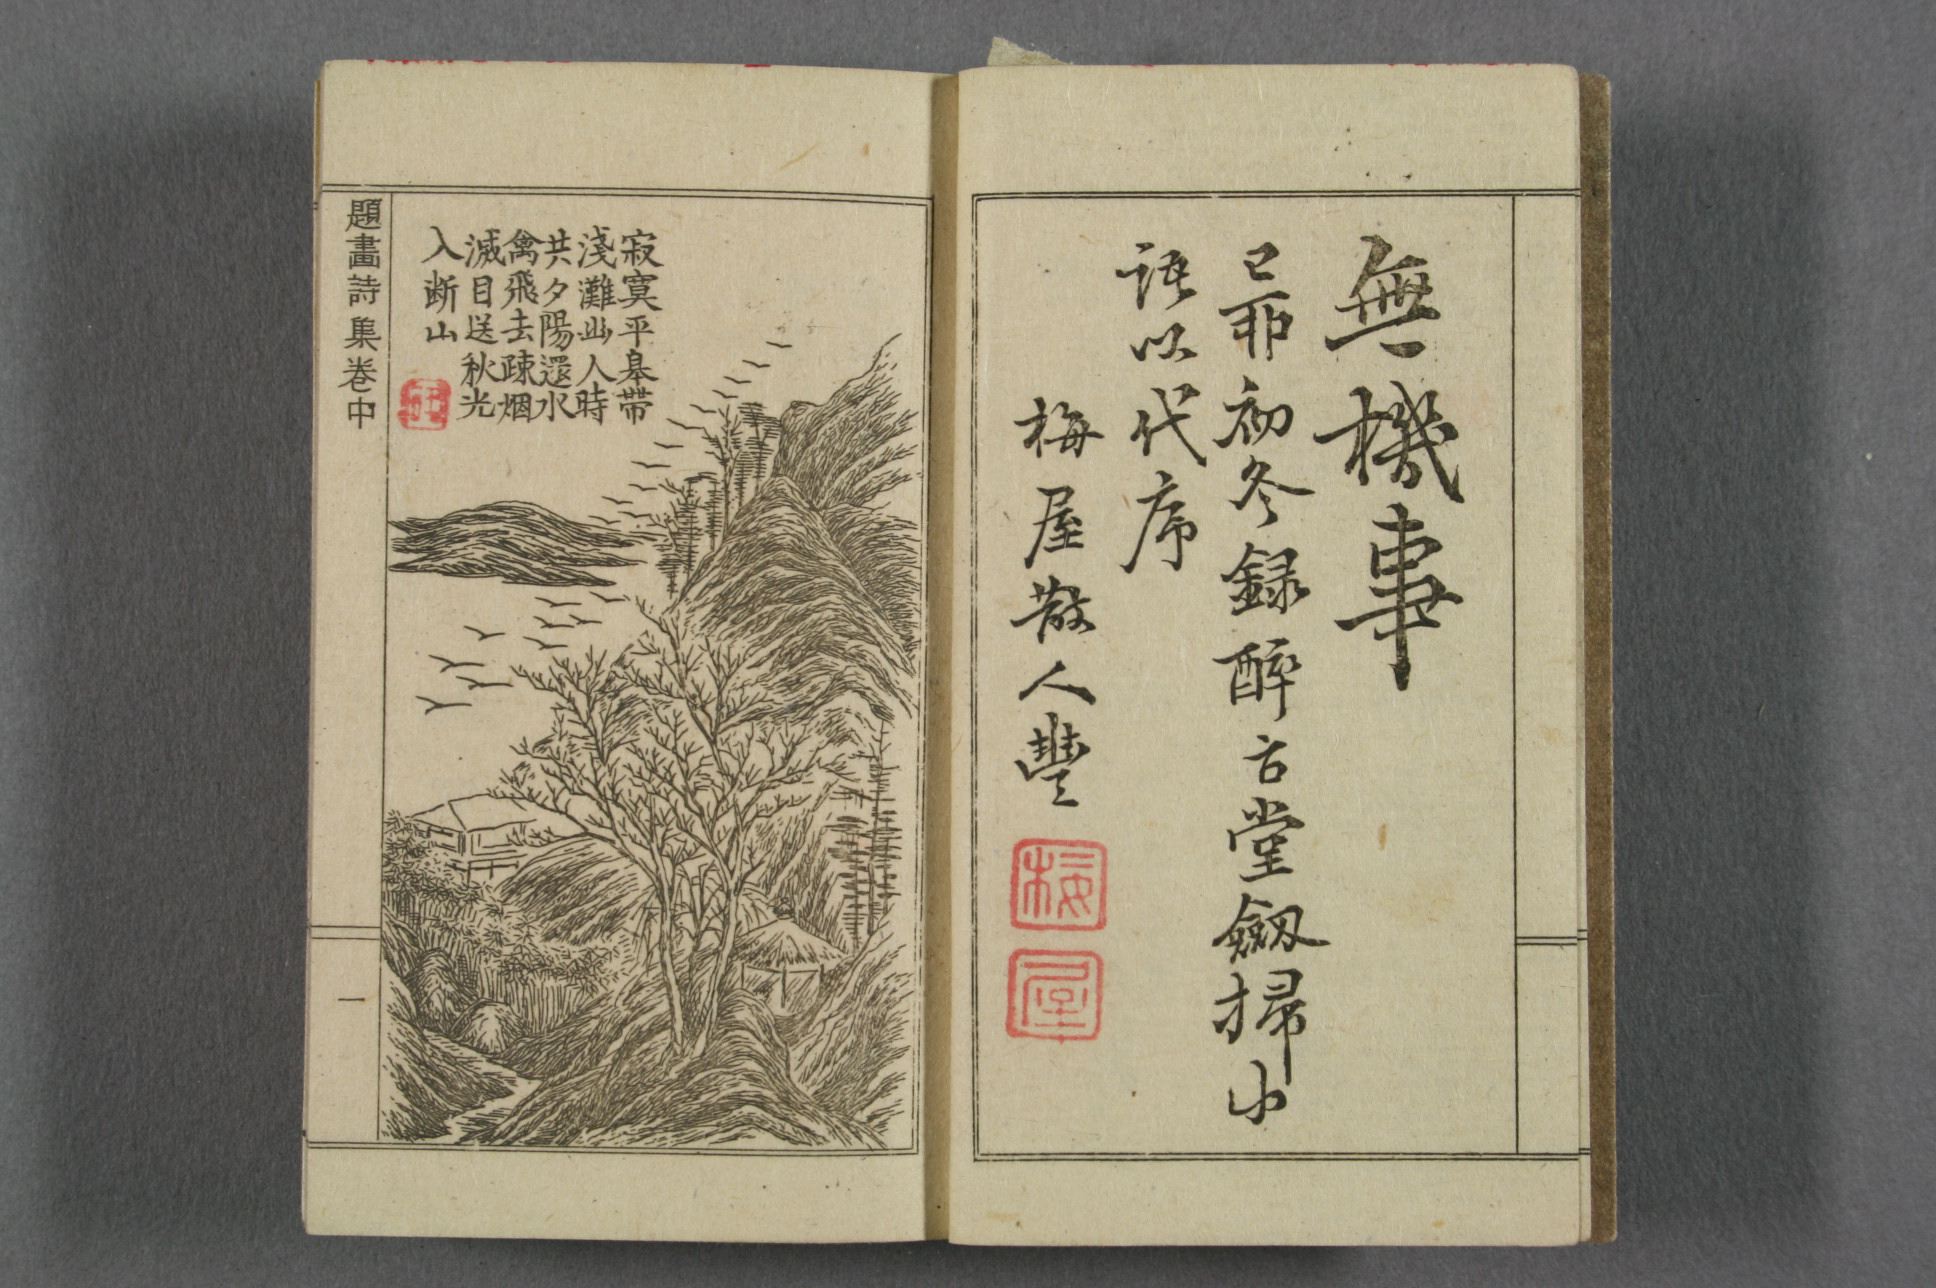 無機事
己卯初冬録醉古堂劔掃中
語以代序
梅屋散人豐
梅
屋
寂寞平皋帶
淺灘幽人時
共夕陽還水
禽飛去疎烟
滅目送秋光
入断山
題畫詩集卷中
一